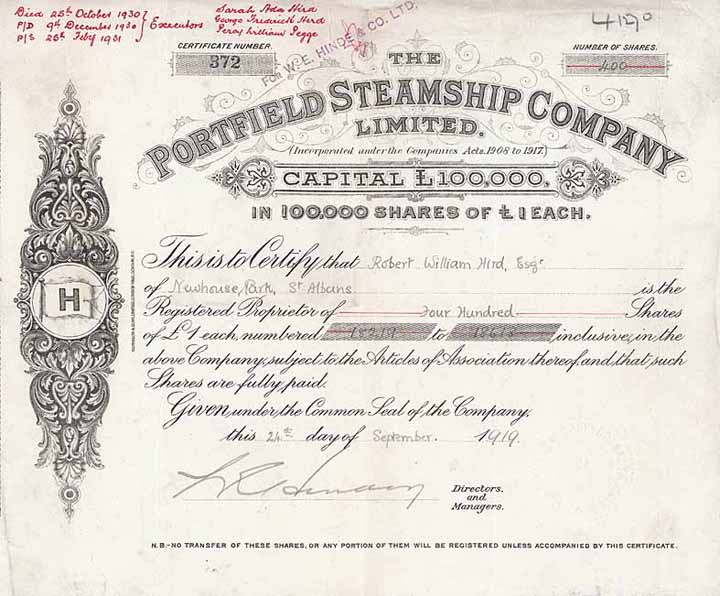 Died 25th October 1930
P/D 9th December 1930
P/S 25th Feby 1931
Executors
Sarah Ada Hird
George Frederick Hird
Percy William Pegge
CERTIFICATE NUMBER.
372
FOR W.E. HINDE & CO. LTD.
NUMBER OF SHARES.
400
THE
PORTFIELD STEAMSHIP COMPANY
LIMITED.
(Incorporated under the Companies Acts, 1908 to 1917.)
CAPITAL £100,000,
IN 100,000 SHARES OF £1 EACH.
This is to Certify that Robert William Hird, Esqr
of Newhouse Park, St Albans is the
Registered Proprietor of Four Hundred Shares
of £1 each, numbered to inclusive, in the
above Company, subject to the Articles of Association thereof, and that such
Shares are fully paid.
Given under the Common Seal of the Company,
this 24th day of September. 1919.
H
Directors.
and
Managers.
N.B.-NO TRANSFER OF THESE SHARES, OR ANY PORTION OF THEM WILL BE REGISTERED UNLESS ACCOMPANIED BY THIS CERTIFICATE.